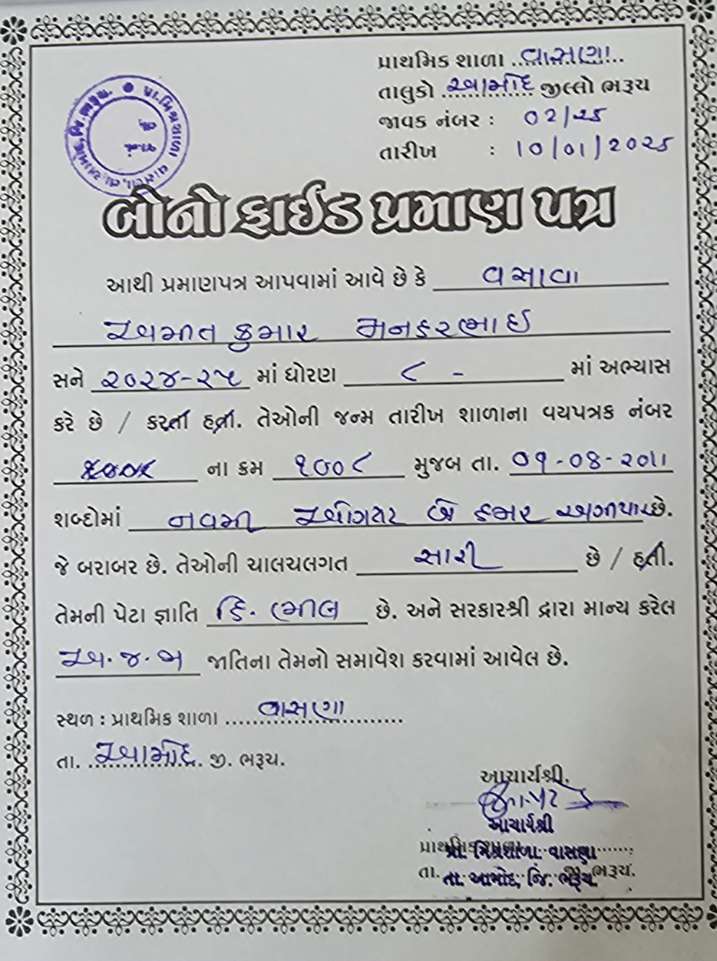 પ્રાથમિક શાળા વાસણા
તાલુકો આમોદ જીલ્લો ભરૂચ
જાવક નંબર : ૦૨/૨૫
તારીખ : 10/01/2025
બોનોફાઈડ પ્રમાણ પત્ર
આથી પ્રમાણપત્ર આપવામાં આવે છે કે વસાવા
કુમાર
સને ૨૦૨૪-૨૫ માં ધોરણ ૮ - માં અભ્યાસ
કરે છે / કરતા હતા. તેઓની જન્મ તારીખ શાળાના વયપત્રક નંબર
ના ક્રમ ૧૦૦૮ મુજબ તા. ૦૧-૦૮-૨૦૧૧
શબ્દોમાં બે હજાર અગીયાર છે.
જે બરાબર છે. તેઓની ચાલચલગત સારી છે / હતી.
તેમની પેટા જ્ઞાતિ હિ. ભીલ છે. અને સરકારશ્રી દ્વારા માન્ય કરેલ
અ.જ.જા જાતિના તેમનો સમાવેશ કરવામાં આવેલ છે.
સ્થળ : પ્રાથમિક શાળા વાસણા
તા. આમોદ જી. ભરૂચ.
આચાર્યશ્રી.
આચાર્યશ્રી
પ્રાથમિક શાળા
પ્રા. મિશ્રશાળા વાસણા
તા. જી. ભરૂચ.
તા. આમોદ, જિ. ભરૂચ